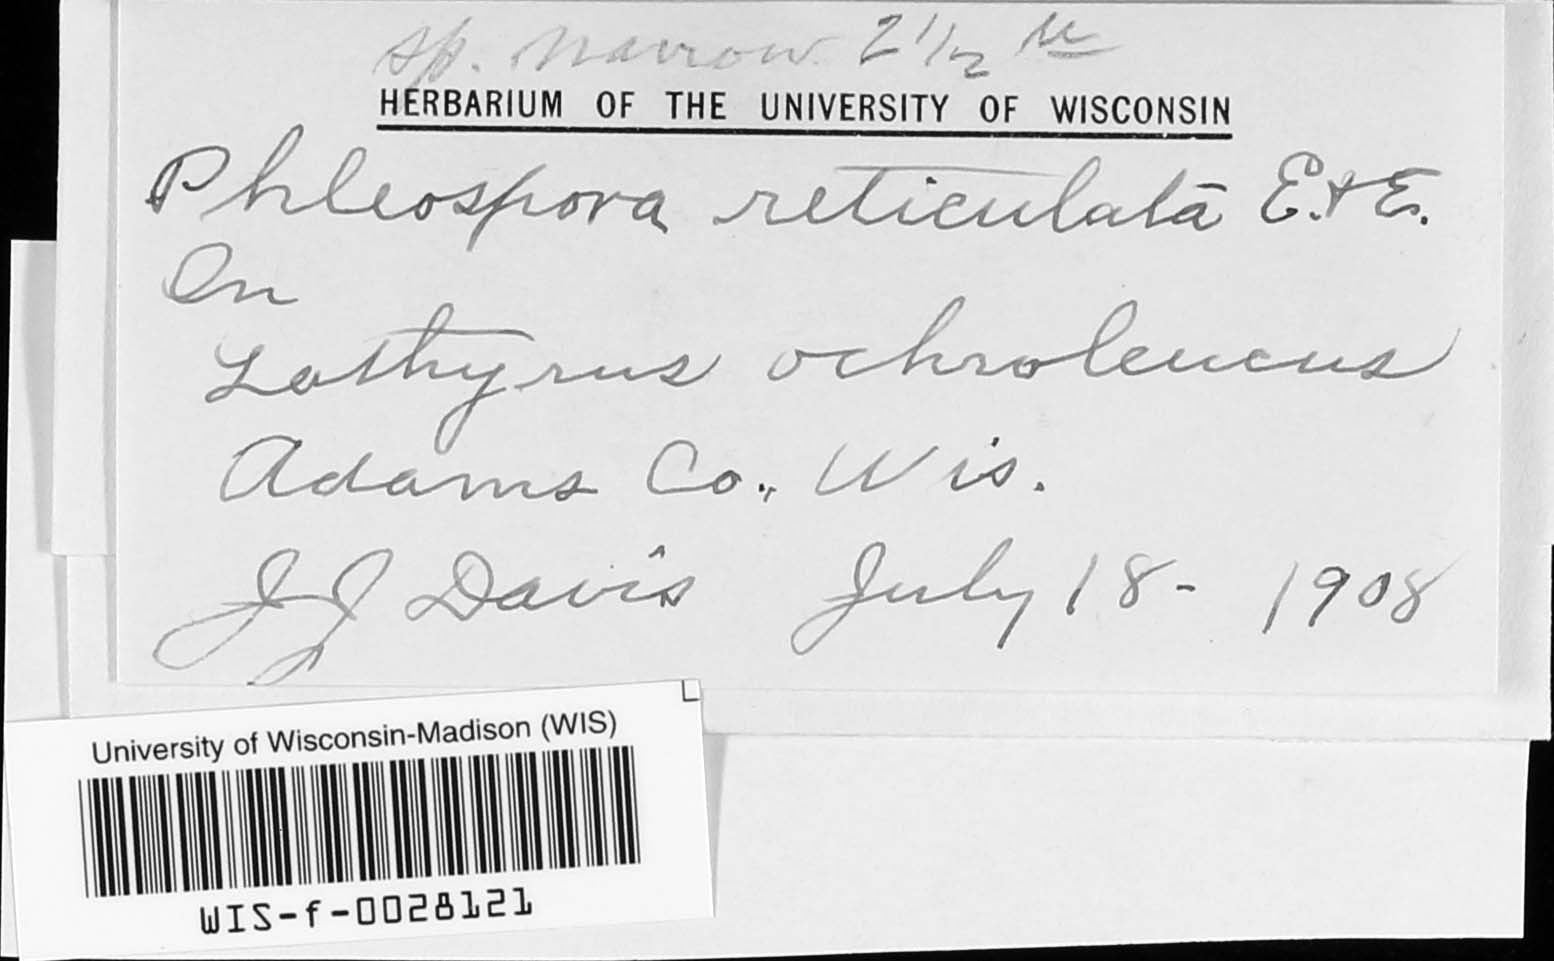 sp. narrow 2 1/2 µ
HERBARIUM OF THE UNIVERSITY OF WISCONSIN
Phleospora reticulata E. & E.
On
Lathyrus ochroleucus
Adams Co., Wis.
JJ Davis July 18 - 1908
University of Wisconsin-Madison (WIS)
WIS-f-0028121